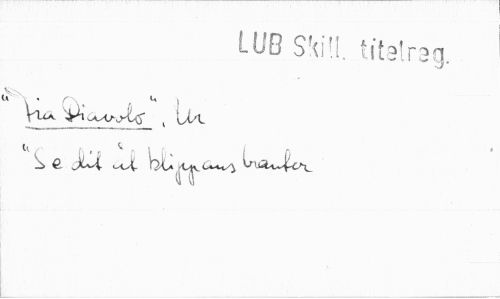 LUB Skill. titelreg.
"Fra Diavolo", Ur
"Se dit åt klippans branter